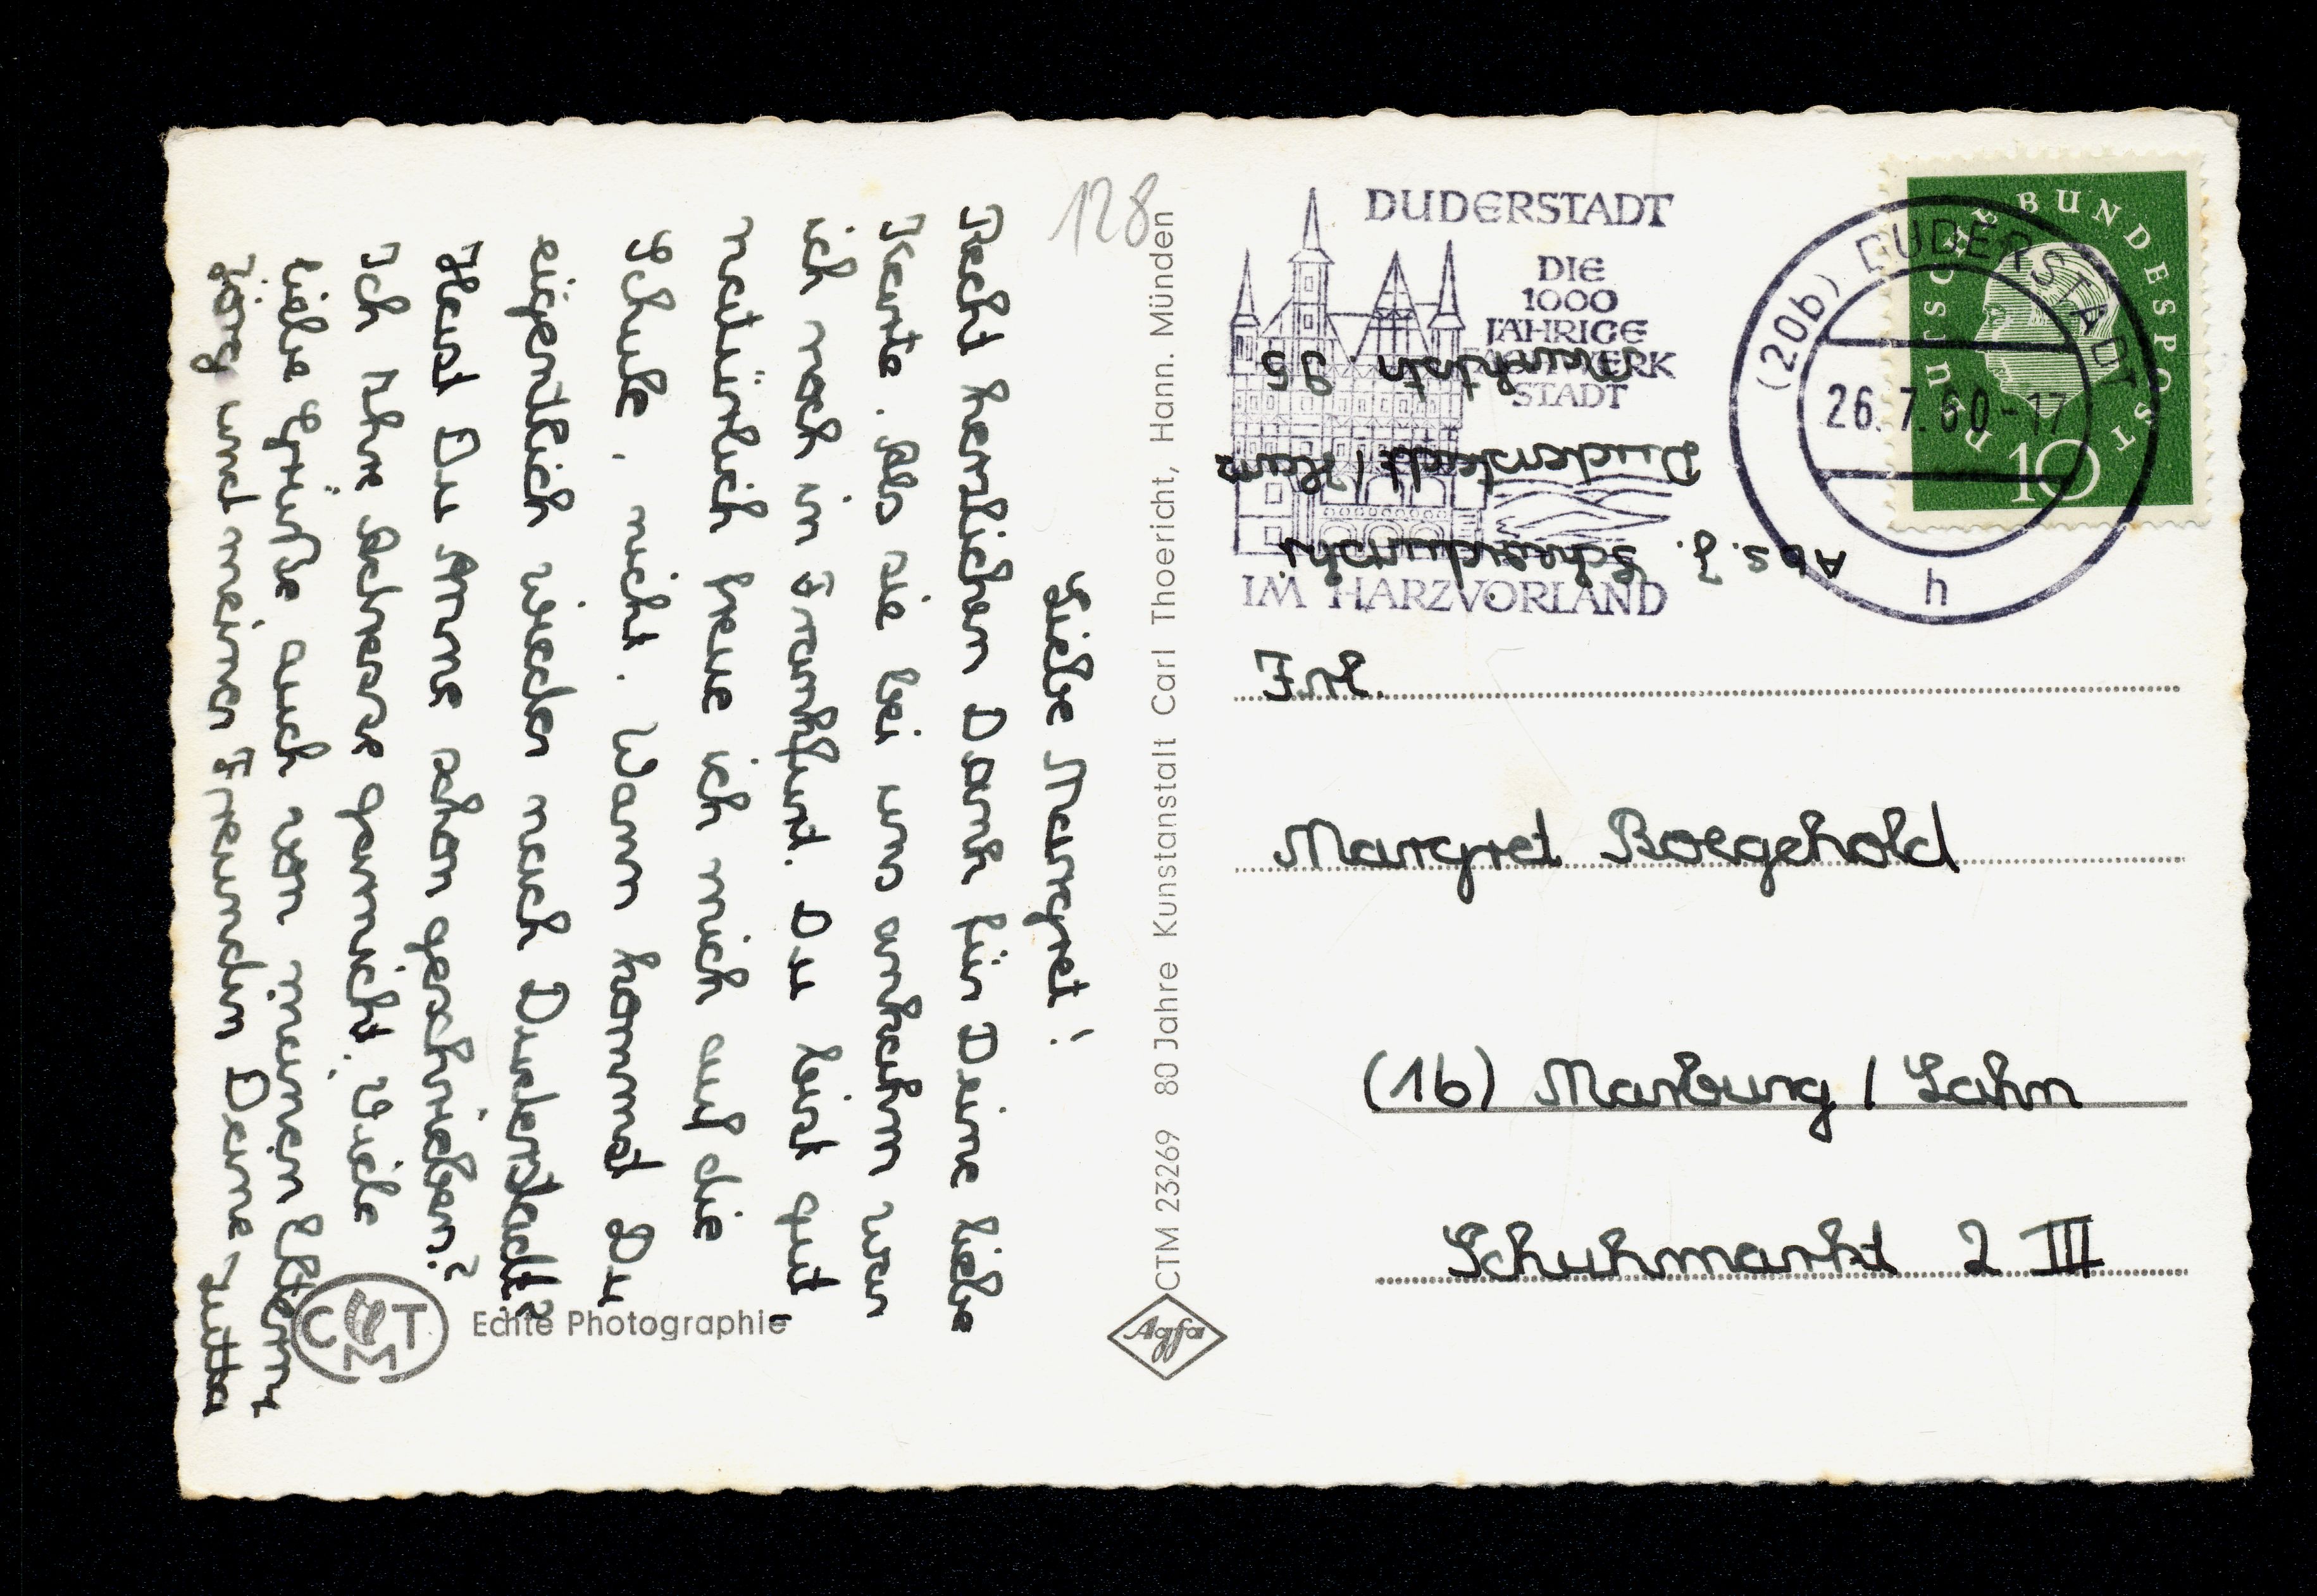 128
Liebe Margret!
Recht herzlichen Dank für Deine liebe
Karte. Als sie bei uns ankahm war
ich noch in Frankfurt. Du bist gut,
natürlich freue ich mich auf die
Schule, nicht. Wann kommst Du
eigentlich wieder nach Duderstadt?
Hast Du Anne schon geschrieben?
Ich Ihre Adresse garnicht. Viele
liebe Grüße auch von meinen Eltern,
Jörg und meiner Freundin Deine Jutta
CTM
Echte Photographie
CTM 23269 80 Jahre Kunstanstalt Carl Thoericht, Hann. Münden
Agfa
DUDERSTADT
DIE
1000
JÄHRIGE
FACHWERK
STADT
IM HARZVORLAND
(20b) DUDERSTADT
26.7.60-17
h
DEUTSCHE BUNDESPOST
10
Abs. J.
Duderstadt / Harz
Marktstr.
Frl.
Margret Boegehold
(16) Marburg / Lahn
Schuhmarkt 2 III